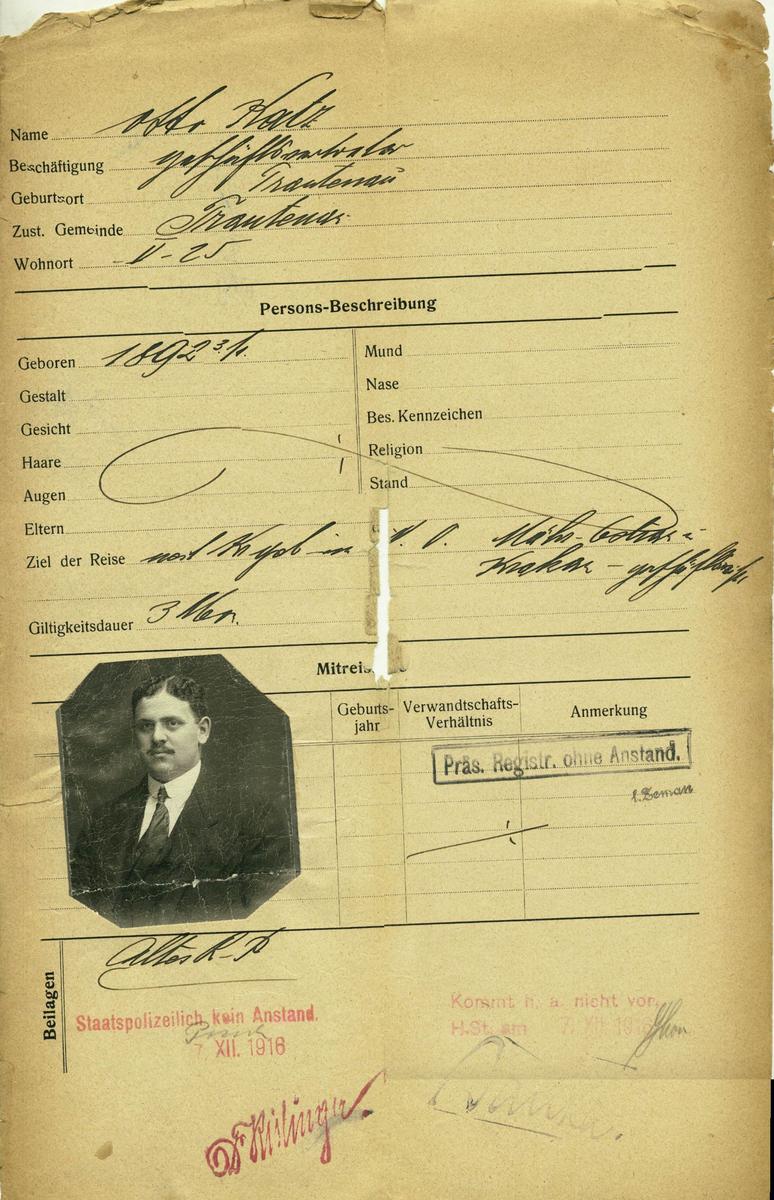 Name Otto Katz
Beschäftigung Geschäftsvertreter
Geburtsort Trautenau
Zust. Gemeinde Trautenau
Wohnort II - 25
Persons-Beschreibung
Geboren 1892
Gestalt
Gesicht
Haare
Augen
Mund
Nase
Bes. Kennzeichen
Religion
Stand
Eltern
Ziel der Reise Mähr. Ostrau
Krakau
Giltigkeitsdauer 3 Mon.
Geburts-
jahr
Verwandtschafts-
Verhältnis
Anmerkung
Präs. Registr. ohne Anstand.
Beilagen
Altes R-P
Staatspolizeilich kein Anstand.
7 XII. 1916
Kommt h. a. nicht vor.
H.St. am 7. XII. 1916